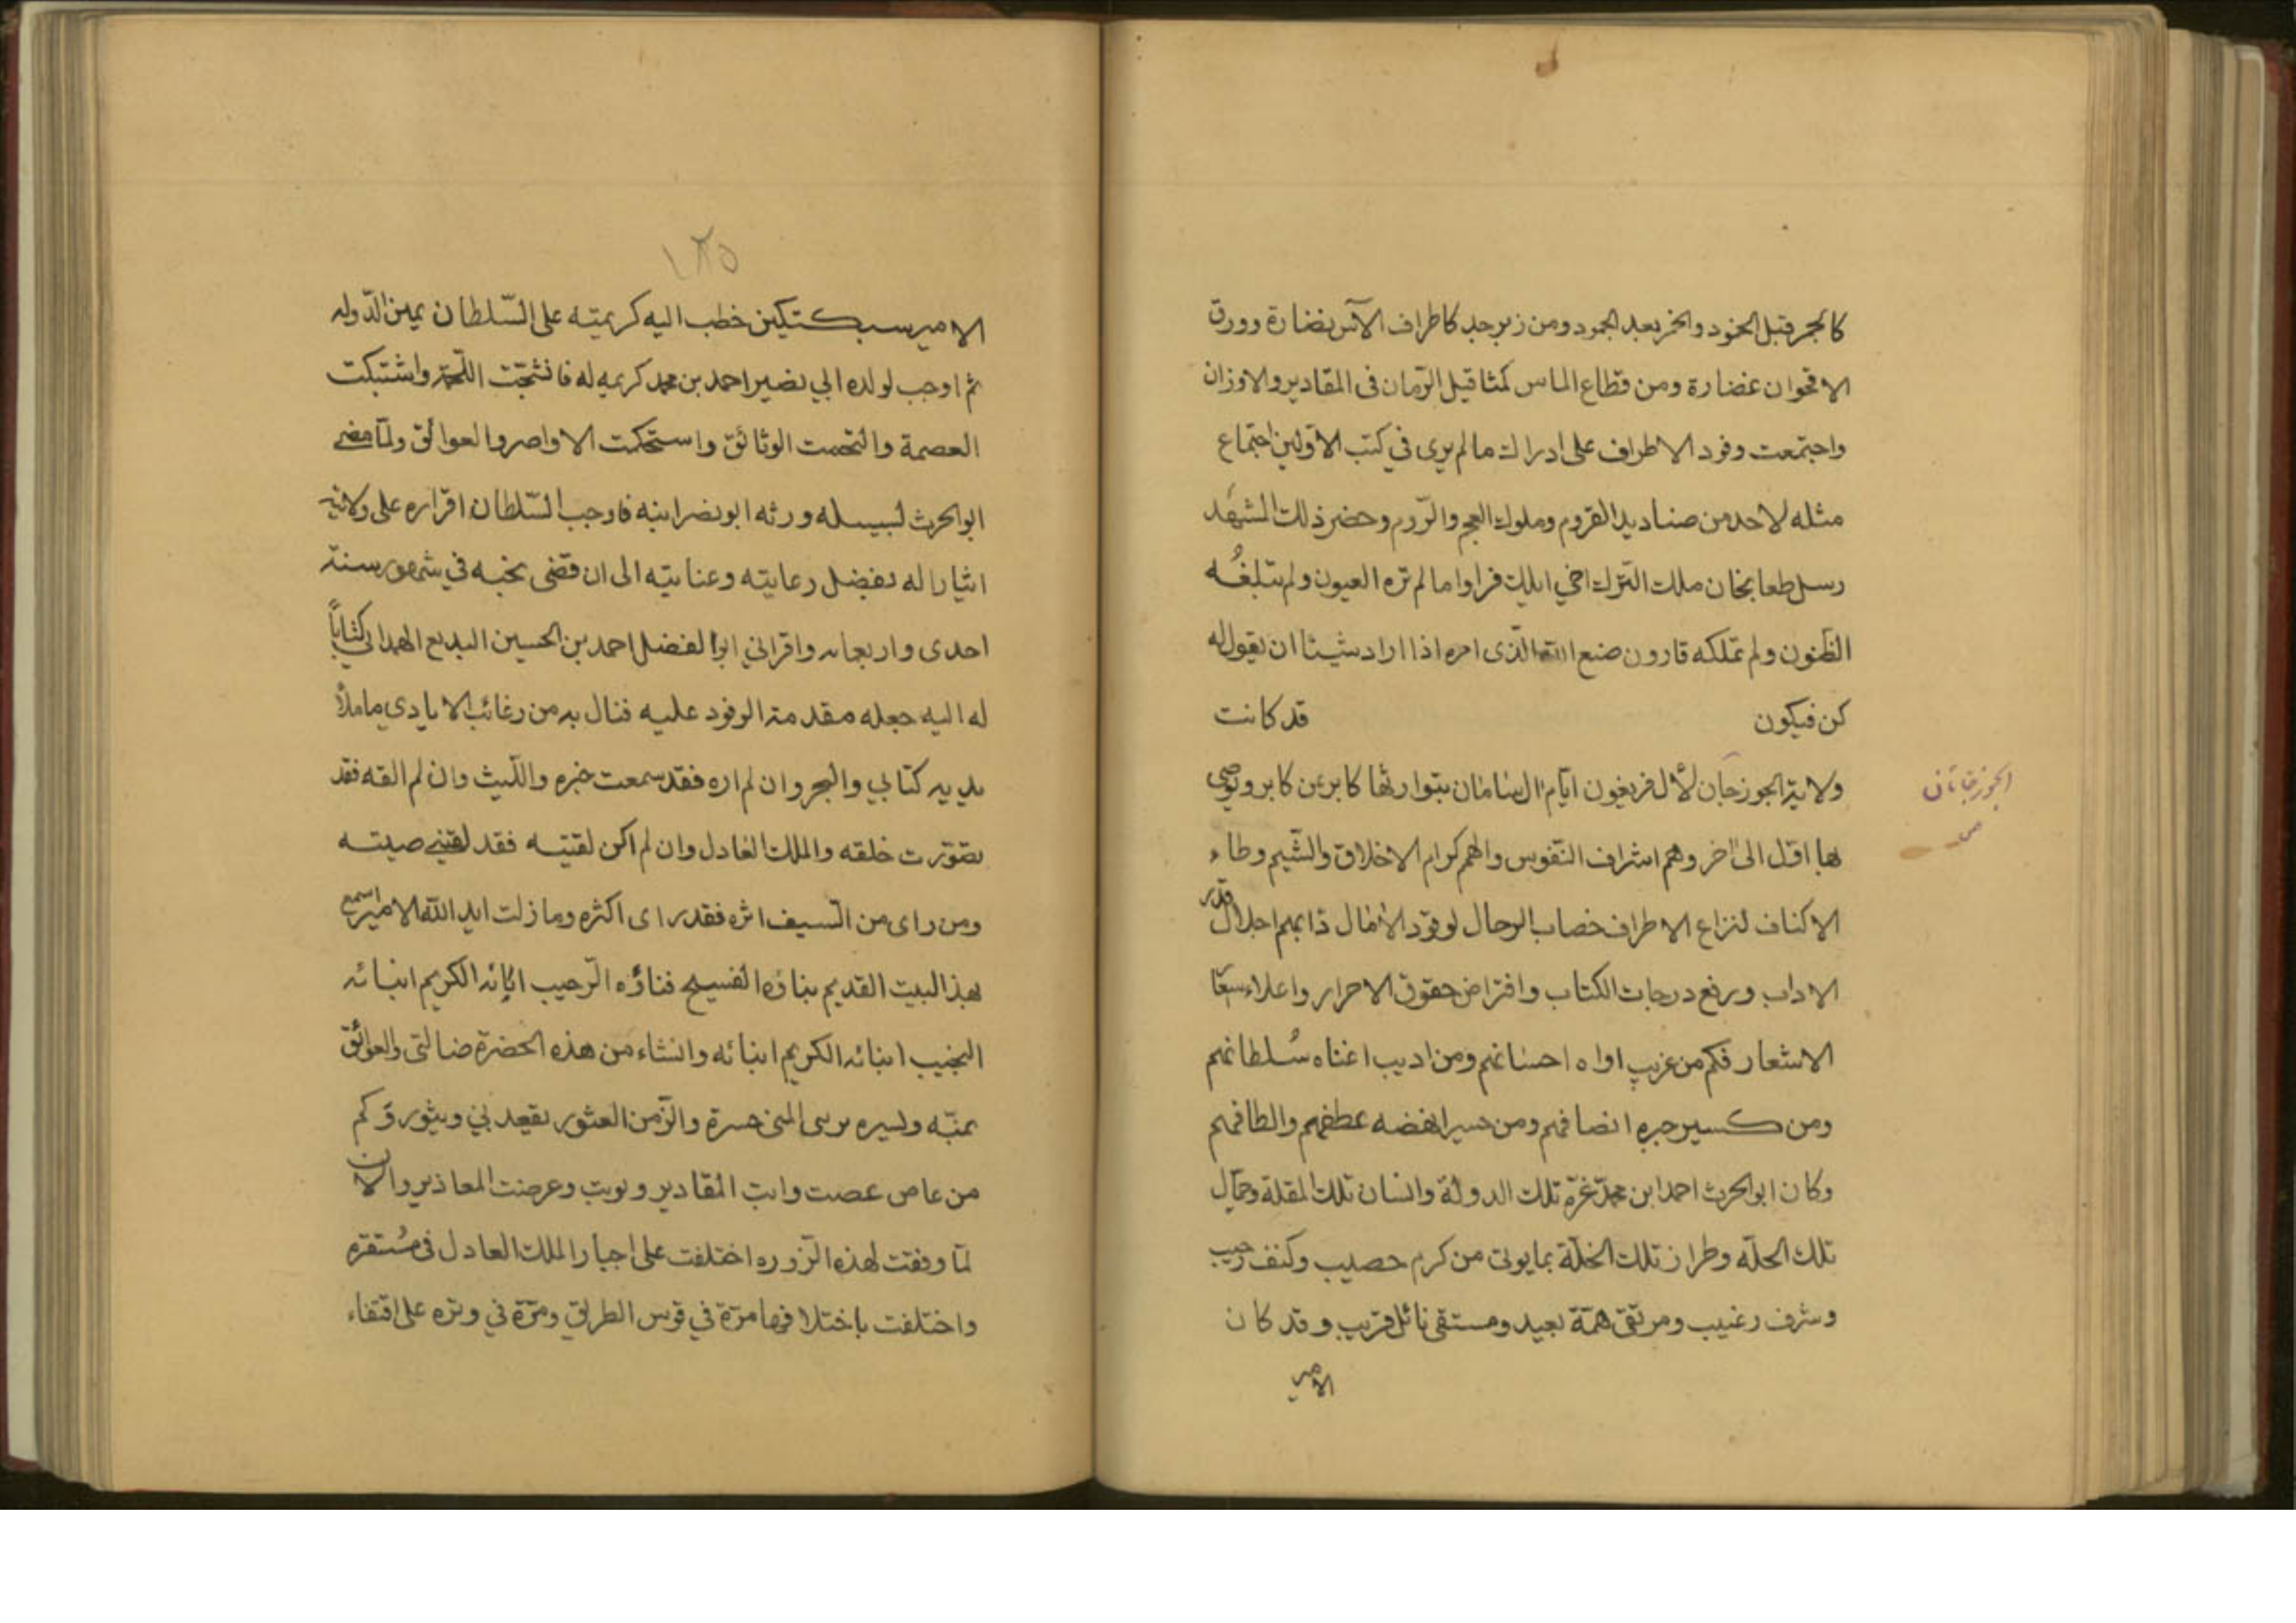 كالجمر قبل الخمود والخمر بعد الجمود ومن زبرجد كاطراف الآس نضارة وورق
الاقحوان غضارة ومن قطاع الماس كمثاقيل الرّمان فى المقادير والاوزان
واجتمعت وفود الاطراف على ادراك ما لم يرى في كتب الاوّلين اجتماع
مثله لاحد من صناديد القروم وملوك العجم والرّوم وحضر ذلك المشهَد
رسل طعابخان ملك الترك اخي ايلك فراوا ما لم تره العيون ولم تبلغُه
الظّنون ولم تملكه قارون صنع الله الّذى امره اذا اراد شيئا ان يقول له
كن فيكون قد كانت
ولاية الجوزجان لأل فريغون ايّام ال سامان يتوارثها كابر عن كابر ويوصى
بها اوّل الى اخر وهم اشراف النّفوس والهمم كرام الاخلاق والشّيم وطاء
الاكناف لنزاع الاطراف خصاب الرحال لوفود الأمال دابهم اجلال قدر
الاداب ورفع درجات الكتاب وافتراض حقوق الاحرار واعلاء
الاشعار فكم من غريب اواه احسانهم ومن اديب اغناه سُلطانهم
ومن كسير جبره انصافهم ومن حسير انهضه عطفهم والطافهم
وكان ابو الحرث احمد ابن محمّد غرّة تلك الدولة وانسان تلك المقلة وجمال
تلك الحلّه وطراز تلك الخلّة بما يوتى من كرم حصيب وكنف رحيب
وشرف رغيب ومرتقى همّة بعيد ومستقى نائل قريب وقد كان
الامير
الجوزجانان
١٣٥
الامير سبكتكين خطب اليه كريمته على السّلطان يمين الدّوله
ثم اوجب لولده ابي نصير احمد بن محمد كريمه له فانشجّت اللّحمة واشتبكت
العصمة والتحمت الوثائق واستحكمت الاواصر والعوالق ولمّا مضى
ابو الحرث لسبيله ورثه ابو نصر ابنه فاوجب السّلطان اقراره على ولايته
ايثارا له بفضل رعايته وعنايته الى ان قضى نحبه في شهور سنة
احدى واربعمائه واقراني ابوا لفضل احمد بن الحسين البديع الهمداني كتاباً
له اليه جعله مقدمة الوفود عليه فنال به من رغائب الايادى ما ملأ
يديه كتابي والبحر وان لم اره فقد سمعت خبره واللّيث وان لم القه فقد
تصوّرت خلقه والملك العادل وان لم اكن لقيته فقد لقينى صيته
ومن راى من السّيف اثره فقد راى اكثره وما زلت ايد الله الامير اسمع
بهذ البيت القديم بناؤه الفسيح فناؤه الرّحيب اناؤه الكريم ابنائه
النجيب ابنائه الكريم ابنائه وانشاء من هذه الحضرة ضالتى والعوائق
يمنّه ويسيره يرسى المنى حسرة والزّمن العثور يقعد بي ويثور وكم
من عاص عصت وابت المقادير ونويت وعرضت المعاذير والان
لمّا وفقت لهذه الزّوره اختلفت على اخبار الملك العادل فى مُستقره
واختلفت باختلافها مرّة في قوس الطريق ومرّة في وتره على اقتفاء